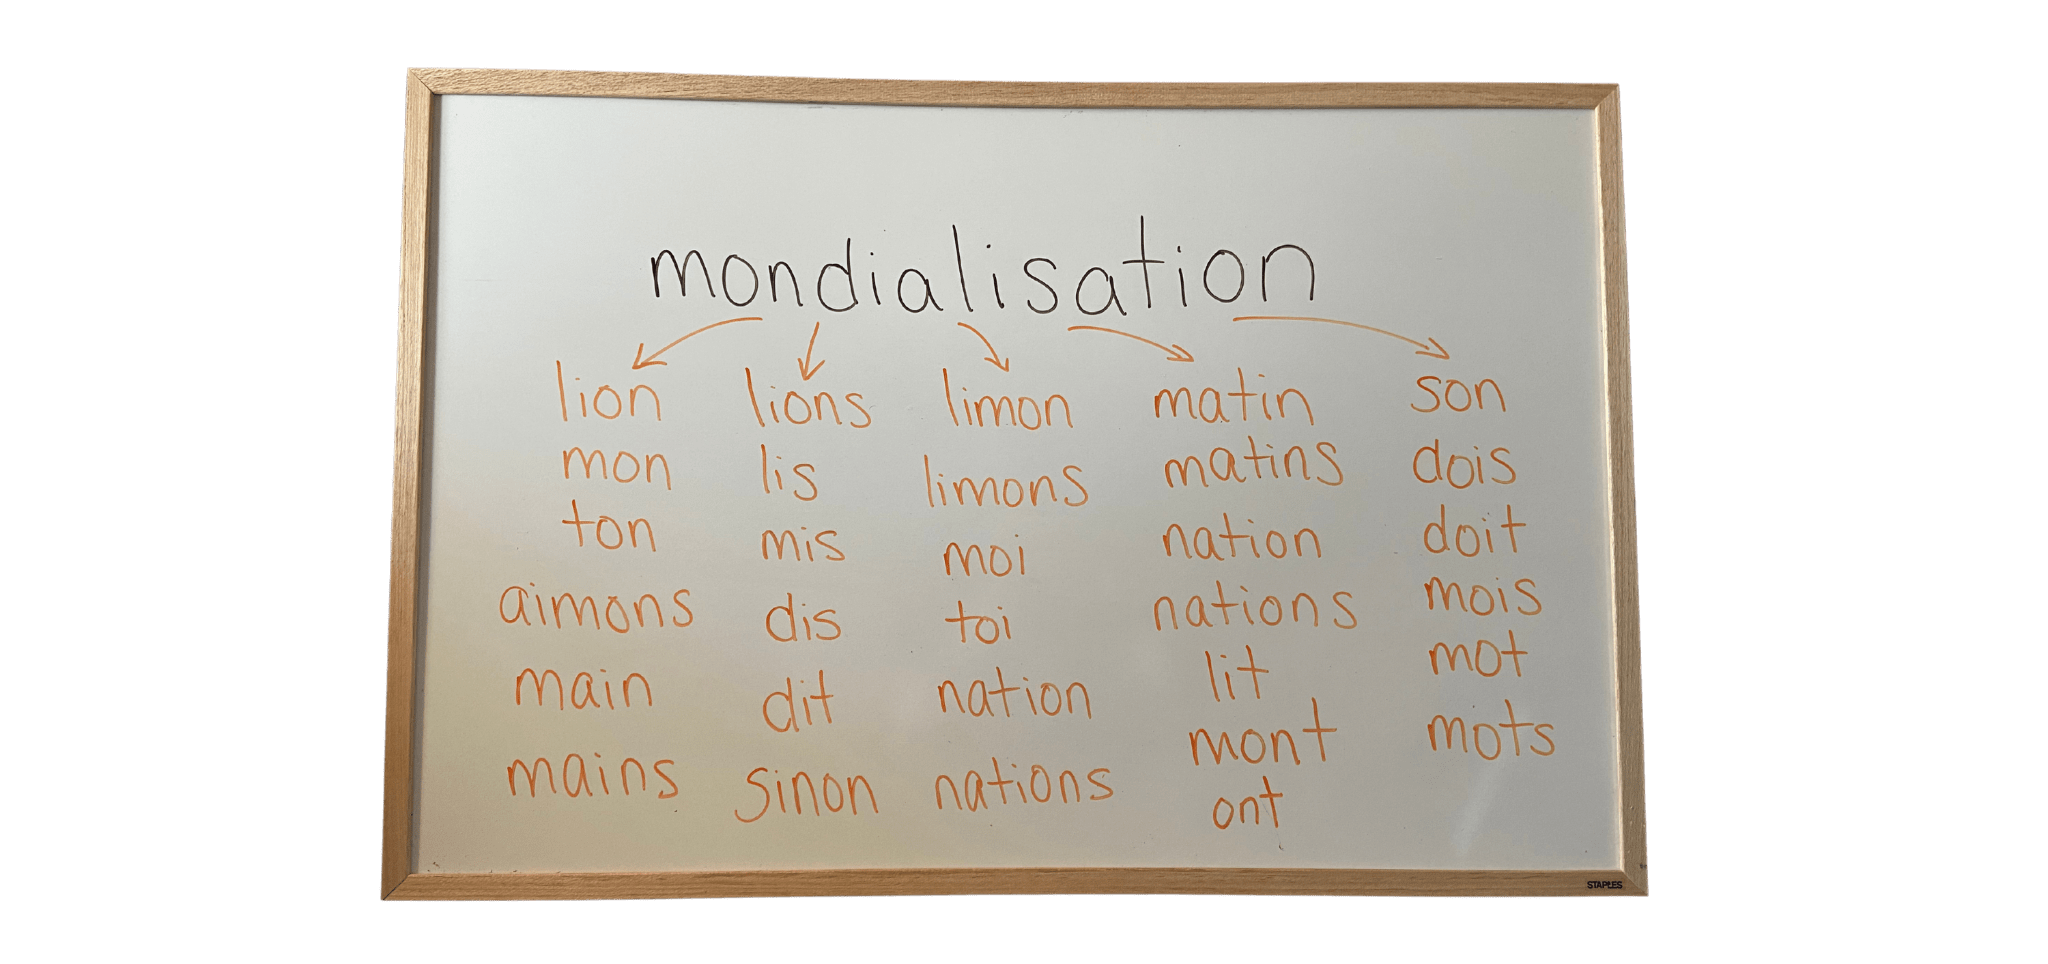 mondialisation
lion lions limon matin son
mon lis limons matins dois
ton mis moi nation doit
aimons dis toi nations mois
main dit nation lit mot
mains sinon nations mont mots
ont
STAPLES